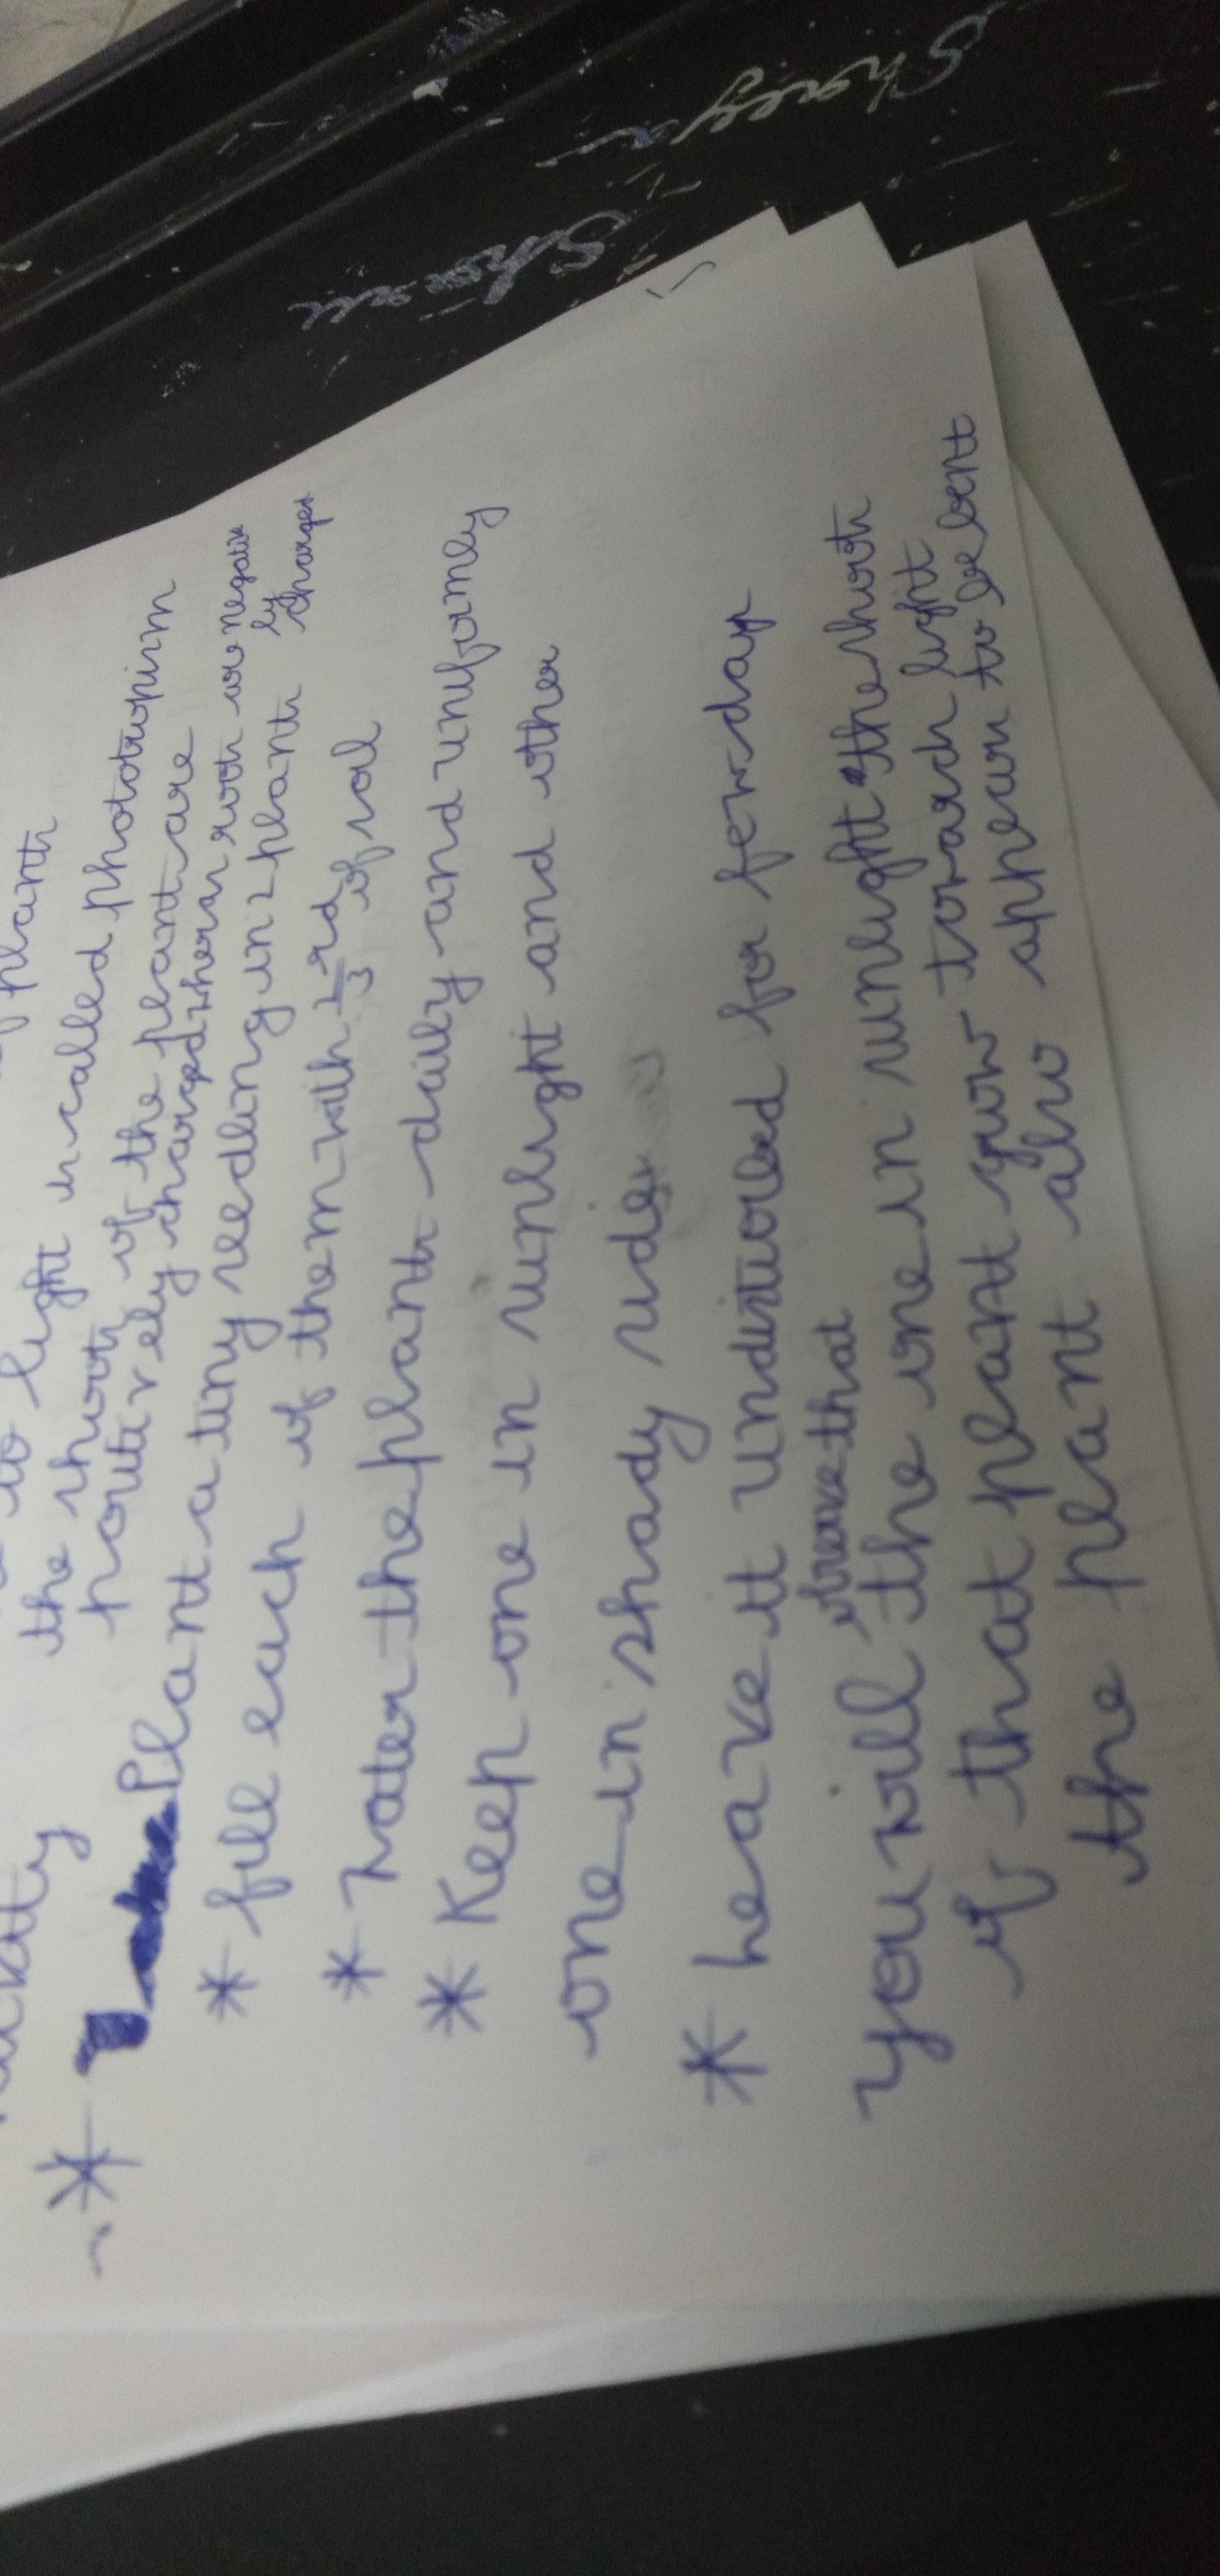 plants
to light is called phototropism
the shoots of the plant are
positively charged wheras roots are negative
ly charges
* Plant a tiny seedling in 2 plants
* fill each of them with 1/3 rd of soil
* Water the plants daily and uniformly
* Keep one in sunlight and other
one in shady sides
* leave it undisturbed for few days
observe that
you will the one in sunlight the shoots
of that plant grow towards light
the plant also appears to be bent